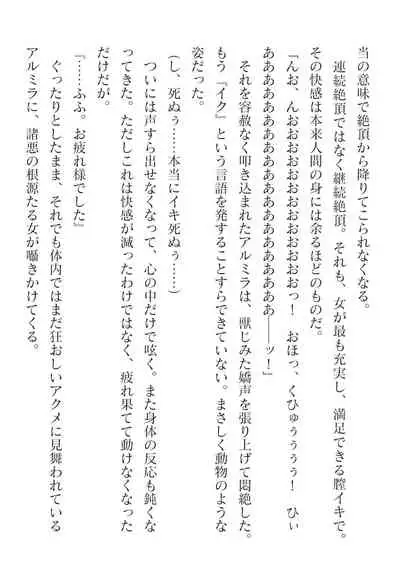 当の意味で絶頂から降りてこられなくなる。
連続絶頂ではなく継続絶頂。それも、女が最も充実し、満足できる膣イキで。
その快感は本来人間の身には余るほどのものだ。
「んお、んおおおおおおおおおおおおおおおおおっ！　おほっ、くひゅぅぅぅぅ！　ひぃ
ああああああああああああああああああああああ――ッ！」
それを容赦なく叩き込まれたアルミラは、獣じみた嬌声を張り上げて悶絶した。
もう『イク』という言語を発することすらできていない。まさしく動物のような
姿だった。
（し、死ぬぅ……本当にイキ死ぬぅ……）
ついには声すら出せなくなって、心の中だけで呟く。また身体の反応も鈍くな
ってきた。ただしこれは快感が減ったわけではなく、疲れ果てて動けなくなった
だけだが。
『……ふふ。お疲れ様でした』
ぐったりとしたまま、それでも体内ではまだ狂おしいアクメに見舞われている
アルミラに、諸悪の根源たる女が囁きかけてくる。